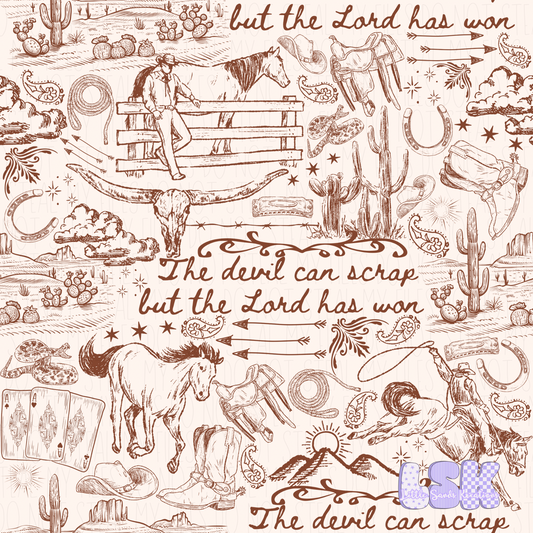 but the Lord has won
The devil can scrap
but the Lord has won
LSK
The devil can scrap